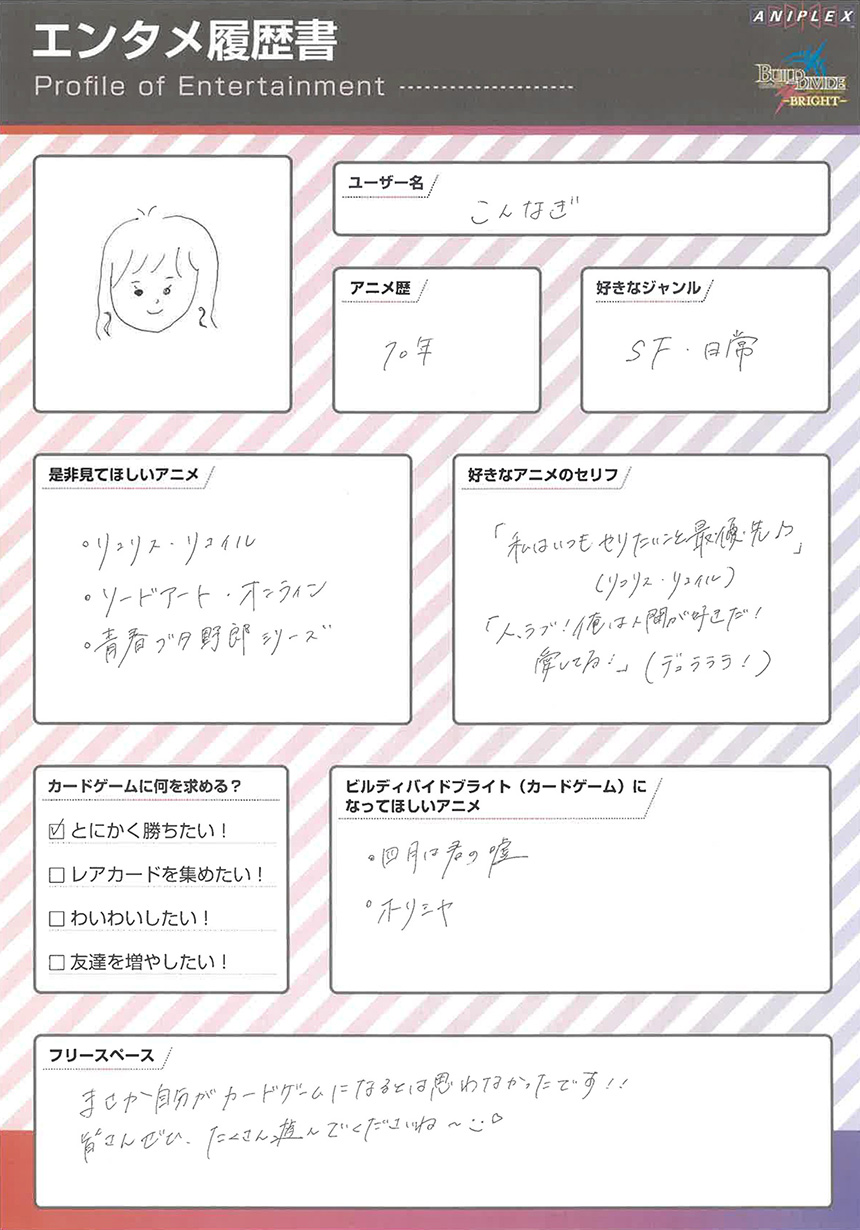 ANIPLEX
エンタメ履歴書
Profile of Entertainment
BUILD DIVIDE
-BRIGHT-
ユーザー名
こんなぎ
アニメ歴
10年
好きなジャンル
SF・日常
是非見てほしいアニメ
。リコリス・リコイル
・ソードアート・オンライン
。青春ブタ野郎シリーズ
好きなアニメのセリフ
「私はいつもやりたいこと最優先♪」
(リコリス・リコイル)
「人、ラブ!俺は人間が好きだ!
愛してる!」(デュラララ!)
カードゲームに何を求める?
☑とにかく勝ちたい!
□レアカードを集めたい!
□わいわいしたい!
□友達を増やしたい!
ビルディバイドブライト(カードゲーム)に
なってほしいアニメ
。四月は君の嘘
。ホリミヤ
フリースペース
まさか自分がカードゲームになるとは思わなかったです!!
皆さんぜひ、たくさん遊んでくださいね~